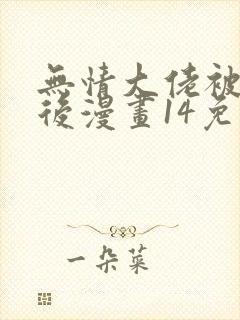 無情大佬被
後漫畫14免
一朵菜